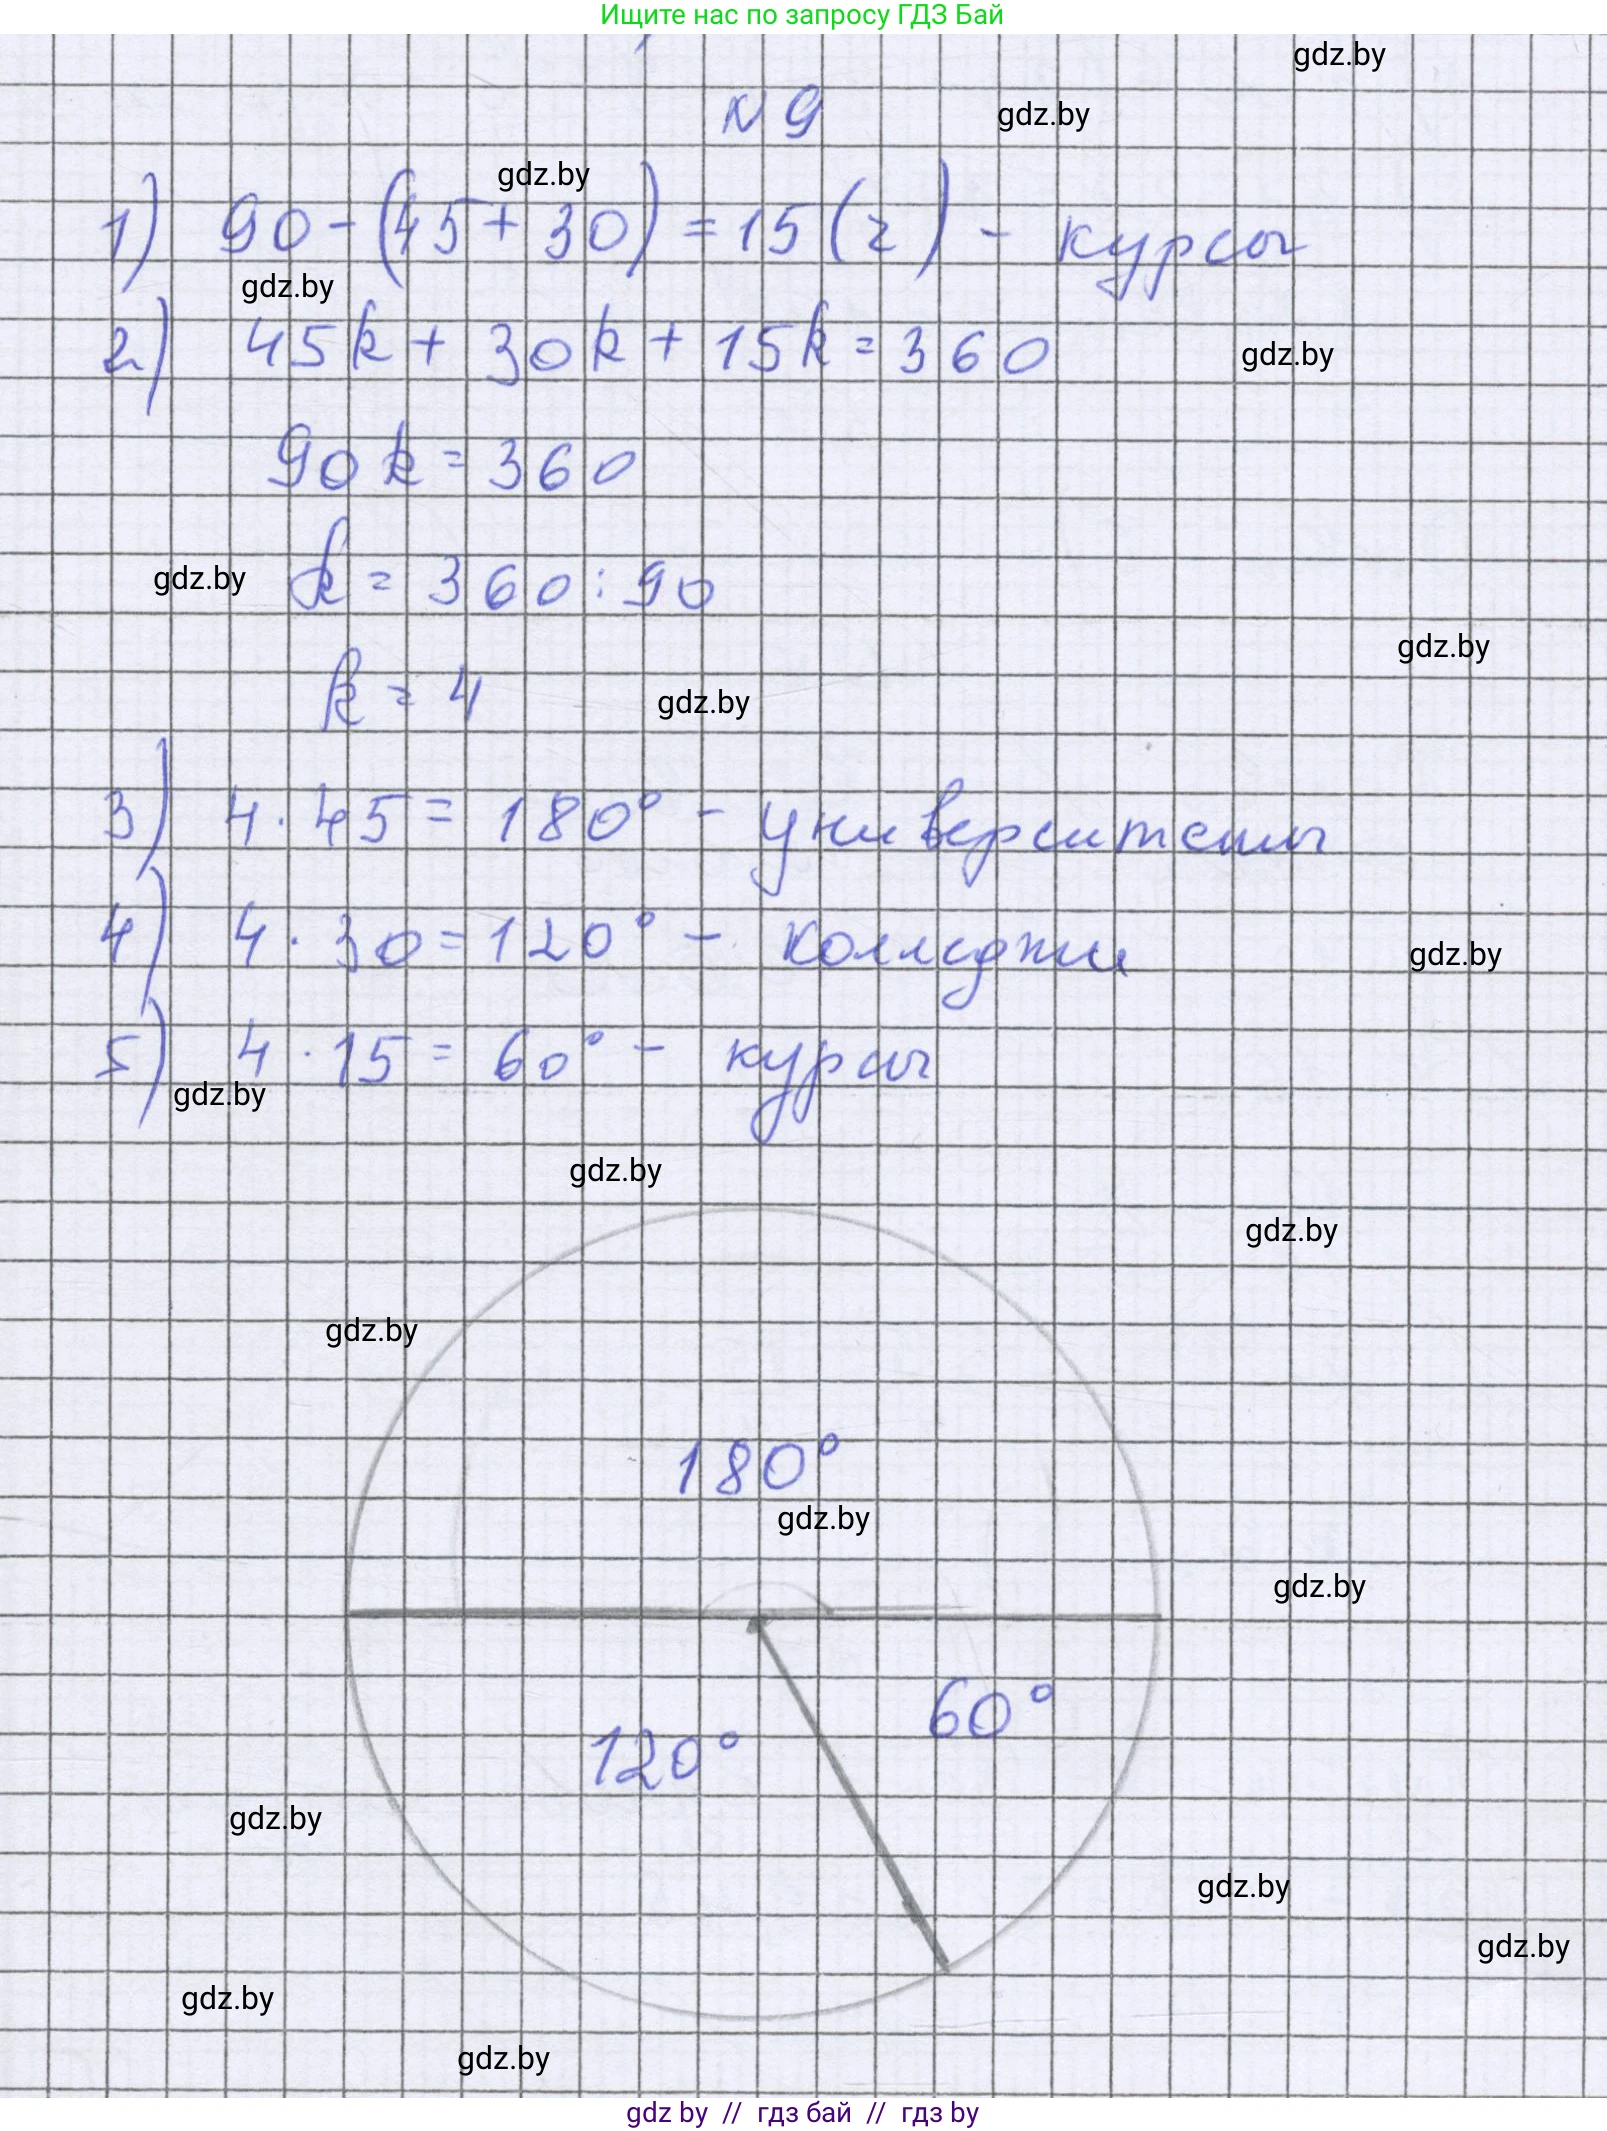 Ищите нас по запросу ГДЗ Бай
gdz.by
N 9
gdz.by
gdz.by
1) 90 - (45 + 30) = 15 (г) - курсы
gdz.by
2) 45k + 30k + 15k = 360
gdz.by
90k = 360
k = 360 : 90
gdz.by
gdz.by
k = 4
gdz.by
3) 4 · 45 = 180° - университеты
4) 4 · 30 = 120° - колледжи
gdz.by
5) 4 · 15 = 60° - курсы
gdz.by
gdz.by
gdz.by
gdz.by
180°
gdz.by
gdz.by
60°
120°
gdz.by
gdz.by
gdz.by
gdz.by
gdz.by
gdz by // гдз бай // гдз by